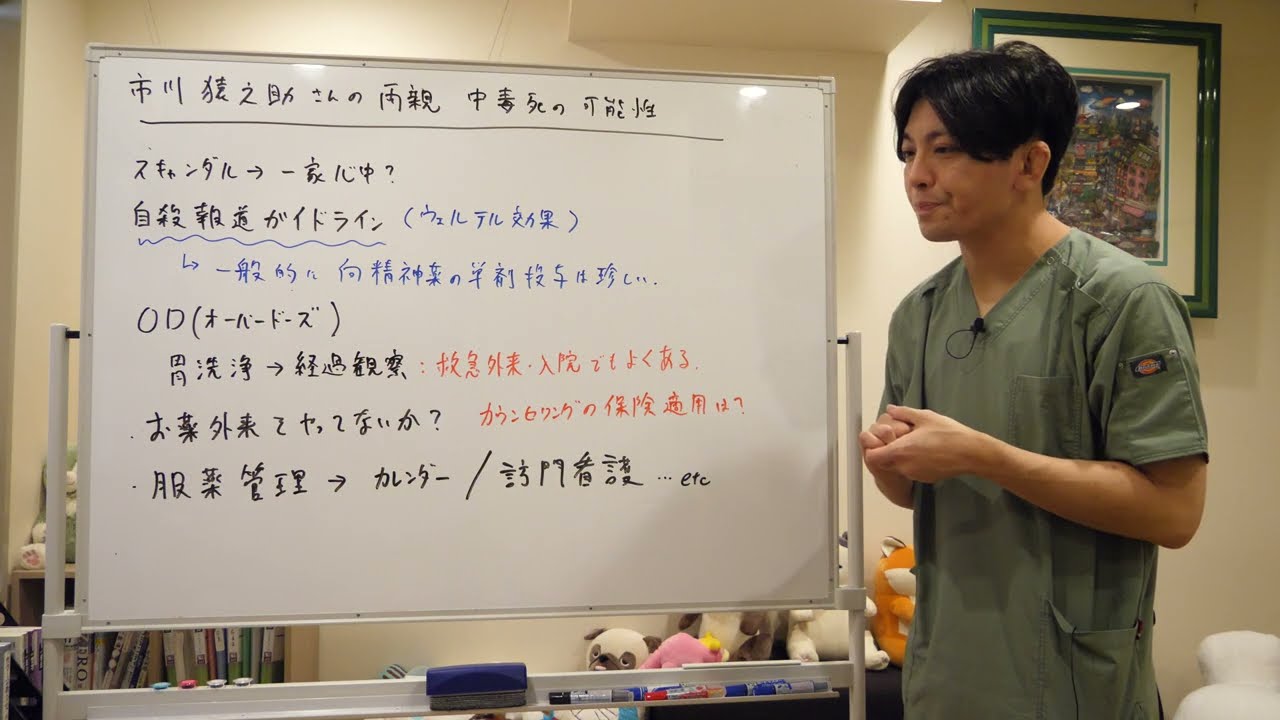 市川猿之助さんの両親 中毒死の可能性
スキャンダル→一家心中?
自殺報道ガイドライン(ウェルテル効果)
↳一般的に向精神薬の単剤投与は珍しい.
OD(オーバードーズ)
胃洗浄→経過観察:救急外来・入院でもよくある.
・お薬外来でやってないか? カウンセリングの保険適用は?
・服薬管理→カレンダー/訪問看護…etc
Dickies